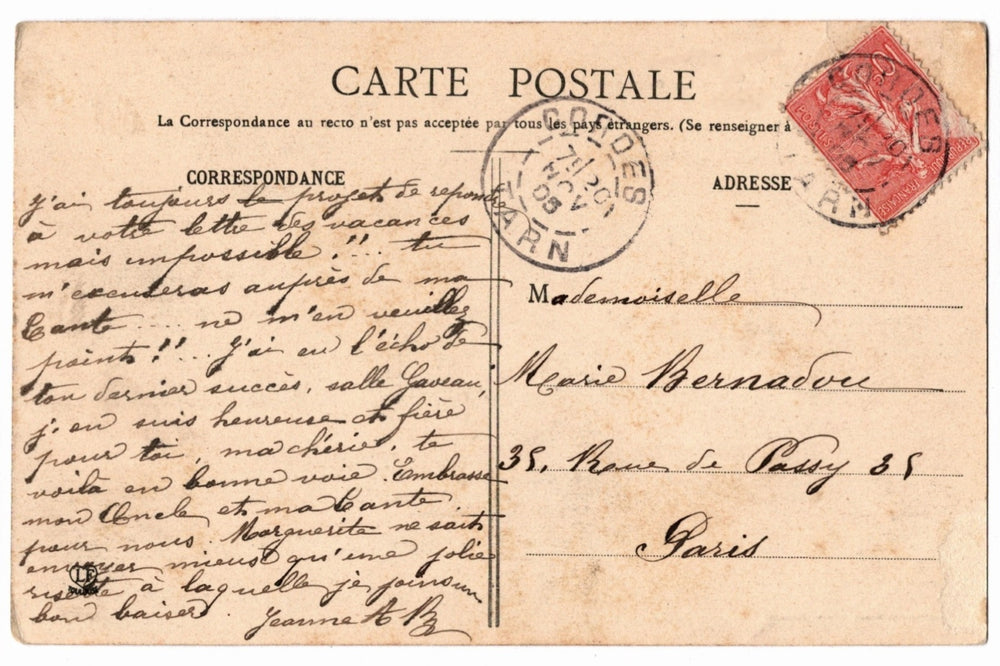 CARTE POSTALE
La Correspondance au recto n'est pas acceptée par tous les pays étrangers. (Se renseigner à
CORRESPONDANCE
J'ai toujours le projet de repondre
à votre lettre des vacances
mais impossible !!... tu
m'excuseras auprès de ma
tante .... ne m'en veuillez
point !!... J'ai eu l'écho de
ton dernier succès, salle Gaveau,
j'en suis heureuse et fière
pour toi, ma chérie, te
voilà en bonne voie. Embrasse
mon Oncle et ma tante
pour nous. Marguerite ne sait
envoyer mieux qu'une jolie
risette à laquelle je joins un
bon baiser. Jeanne
LF
CORDES
TARN
ADRESSE
Mademoiselle
Marie Bernadou
35, Rue de Passy 35
Paris
10
REPUBLIQUE FRANÇAISE
CORDES
TARN